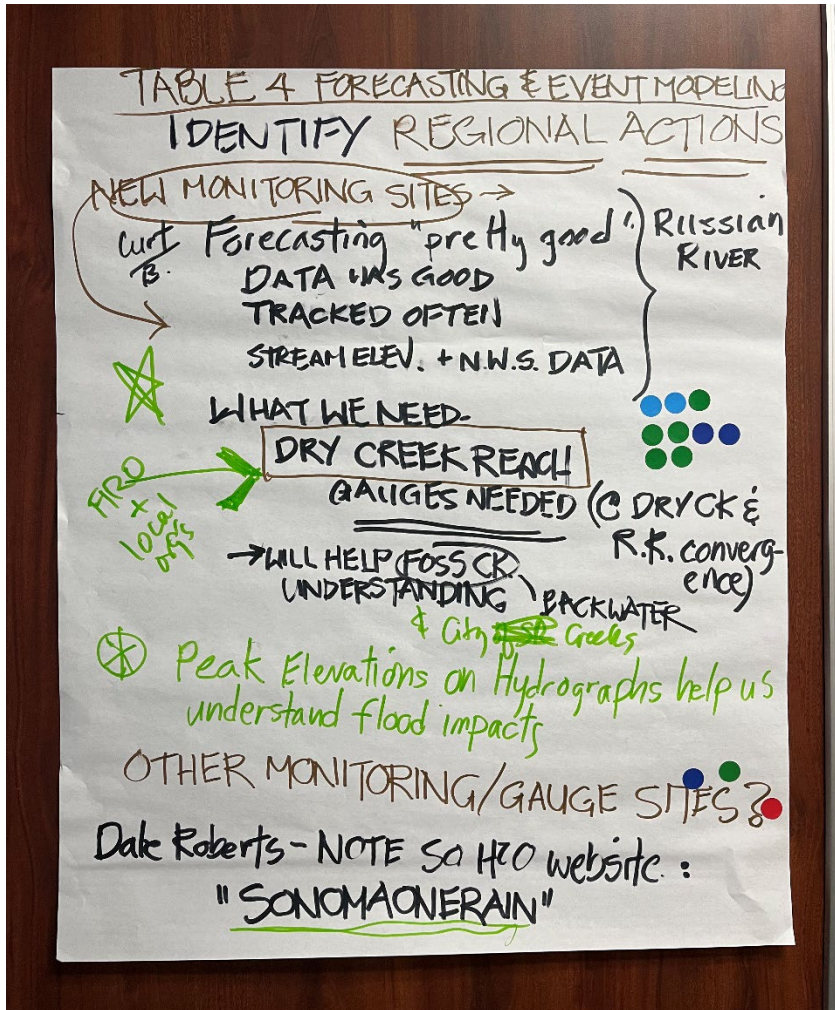 TABLE 4 FORECASTING & EVENT MODELING
IDENTIFY REGIONAL ACTIONS
NEW MONITORING SITES →
Curt B. Forecasting "pretty good"
DATA WAS GOOD
TRACKED OFTEN
STREAM ELEV. + N.W.S. DATA
Russian
RIVER
WHAT WE NEED-
DRY CREEK REACH
GAUGES NEEDED (@ DRY CK &
R.R. converg-
ence)
FIRO
+
local
org's
→ WILL HELP FOSS CK.
UNDERSTANDING
BACKWATER
& City Creeks
Peak Elevations on Hydrographs help us
understand flood impacts
OTHER MONITORING/GAUGE SITES?
Dale Roberts - NOTE SO H2O website:
"SONOMAONERAIN"